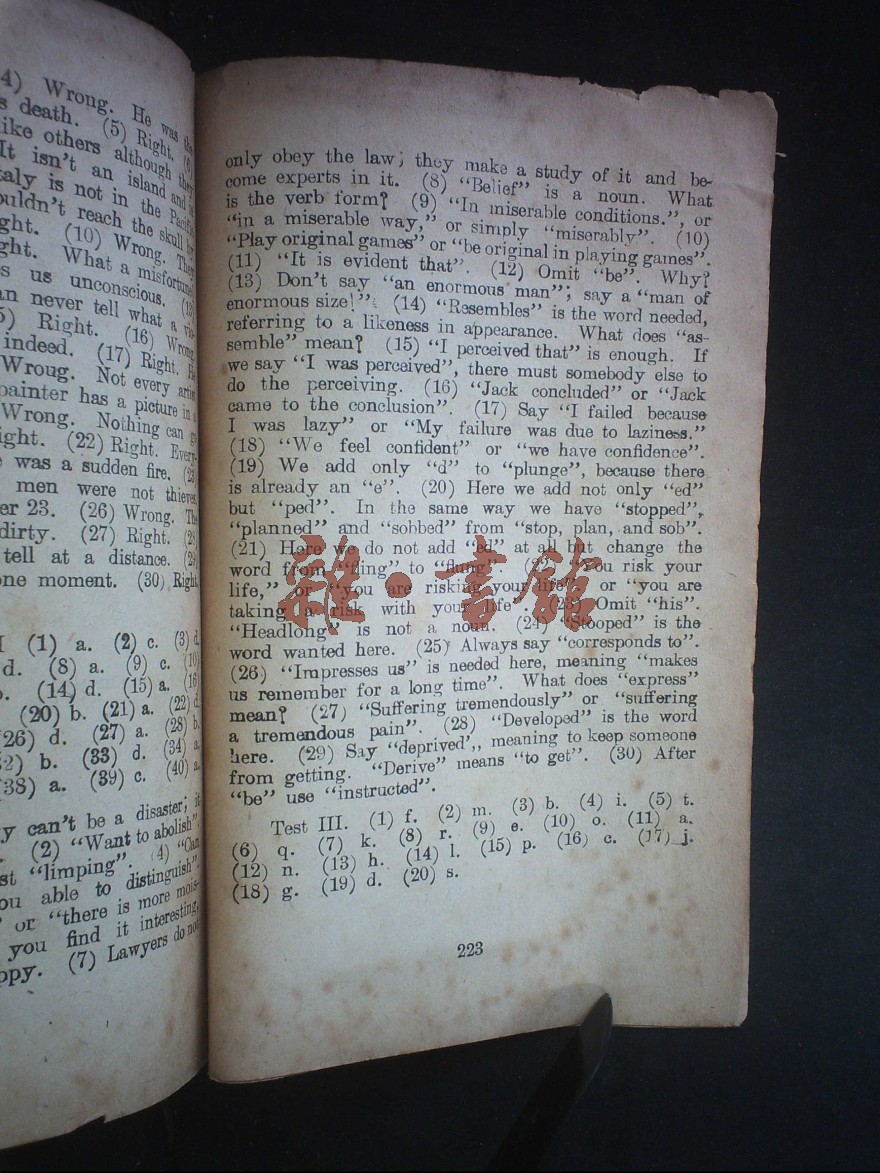 4) Wrong. He was the
s death. (5) Right. (6)
ike others although they
It isn't an island and
aly is not in the Pacific
ouldn't reach the skull by
ght. (10) Wrong. They
ght. What a misfortune
s us unconscious. (13)
an never tell what a
5) Right. (16) Wrong
indeed. (17) Right. He
Wroug. Not every artist
painter has a picture in
Wrong. Nothing can
ight. (22) Right. Every-
was a sudden fire.
men were not thieves
er 23. (26) Wrong. The
dirty. (27) Right. (28
tell at a distance. (29
one moment. (30) Right.
I (1) a. (2) c. (3) d.
d. (8) a. (9) c. (10)
(14) d. (15) a. (16)
(20) b. (21) a. (22) d.
(26) d. (27) a. (28) b.
2) b. (33) d. (34) a.
(38) a. (39) c. (40) a.
y can't be a disaster; it
(2) "Want to abolish".
st "limping". (4) "Can
ou able to distinguish"
or "there is more mois-
you find it interesting,
ppy. (7) Lawyers do not
only obey the law; they make a study of it and be-
come experts in it. (8) "Belief" is a noun. What
is the verb form? (9) "In miserable conditions.", or
"in a miserable way," or simply "miserably". (10)
"Play original games" or "be original in playing games".
(11) "It is evident that". (12) Omit "be". Why?
(13) Don't say "an enormous man"; say a "man of
enormous size!". (14) "Resembles" is the word needed,
referring to a likeness in appearance. What does "as-
semble" mean? (15) "I perceived that" is enough. If
we say "I was perceived", there must somebody else to
do the perceiving. (16) "Jack concluded" or "Jack
came to the conclusion". (17) Say "I failed because
I was lazy" or "My failure was due to laziness."
(18) "We feel confident" or "we have confidence".
(19) We add only "d" to "plunge", because there
is already an "e". (20) Here we add not only "ed"
but "ped". In the same way we have "stopped",
"planned" and "sobbed" from "stop, plan, and sob".
(21) Here we do not add "ed" at all but change the
word from "fling" to "flung". (22) "You risk your
life," or "you are risking your life" or "you are
taking a risk with your life". (23) Omit "his".
"Headlong" is not a noun. (24) "Stooped" is the
word wanted here. (25) Always say "corresponds to".
(26) "Impresses us" is needed here, meaning "makes
us remember for a long time". What does "express"
mean? (27) "Suffering tremendously" or "suffering
a tremendous pain". (28) "Developed" is the word
here. (29) Say "deprived',, meaning to keep someone
from getting. "Derive" means "to get". (30) After
"be" use "instructed".
Test III. (1) f. (2) m. (3) b. (4) i. (5) t.
(6) q. (7) k. (8) r. (9) e. (10) o. (11) a.
(12) n. (13) h. (14) l. (15) p. (16) c. (17) j.
(18) g. (19) d. (20) s.
223
雜·書館